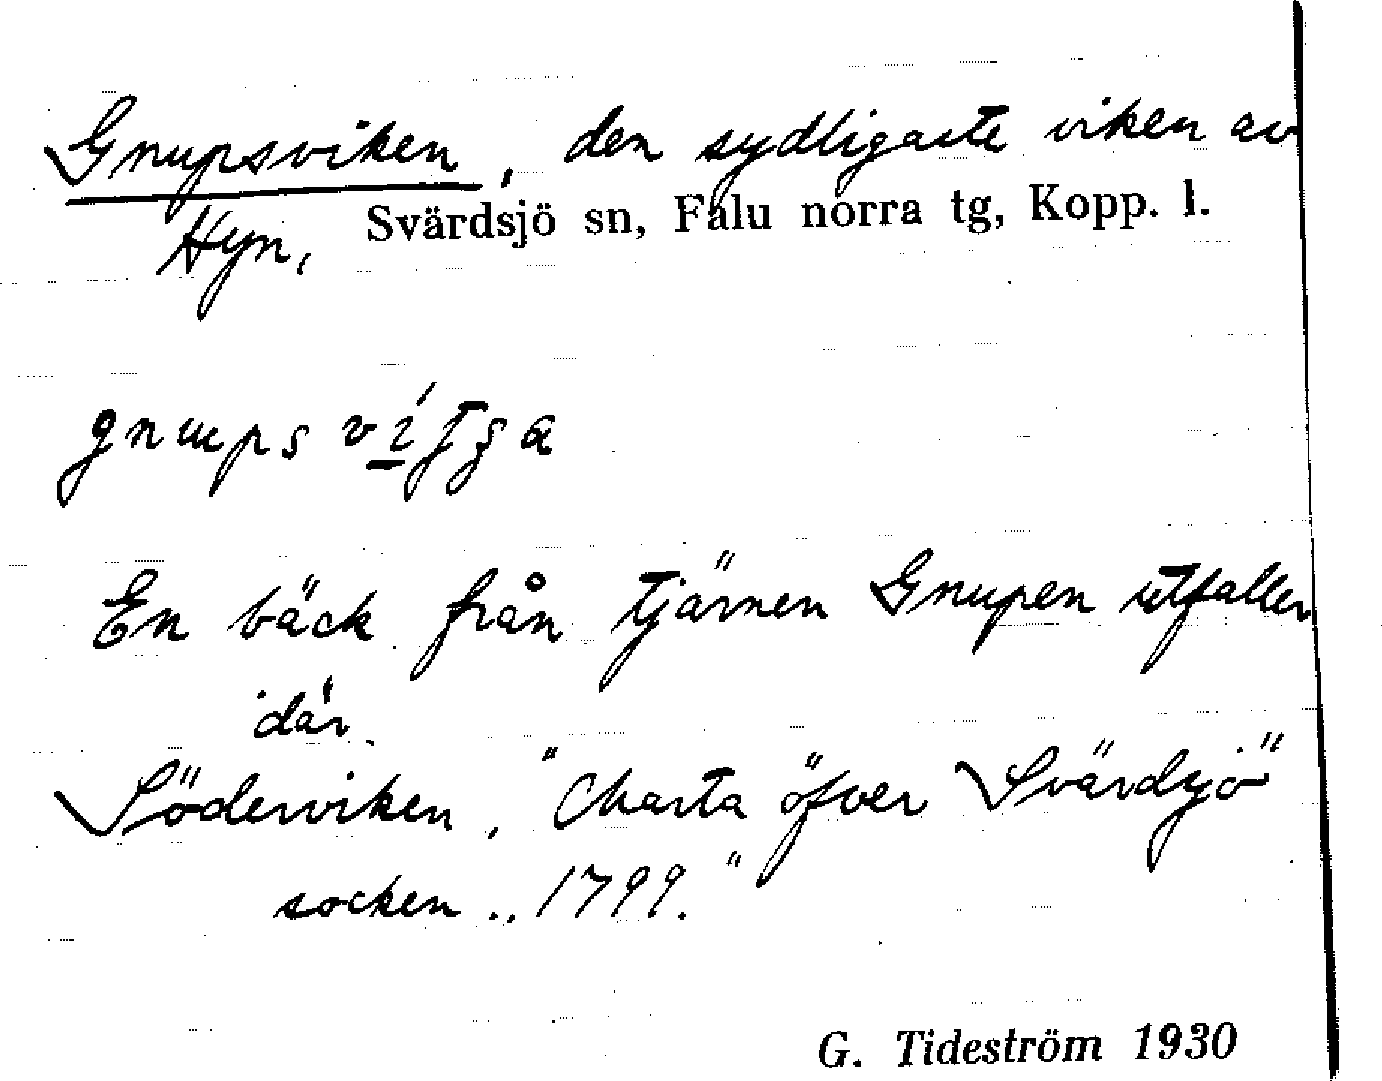 Gnupsviken, den sydligaste viken av
Hyn, Svärdsjö sn, Falu norra tg, Kopp. l.
En bäck från tjärnen Gnupen utfaller
där.
Söderviken, "Charta öfver Svärdsjö"
socken .. 1799."
G. Tideström 1930